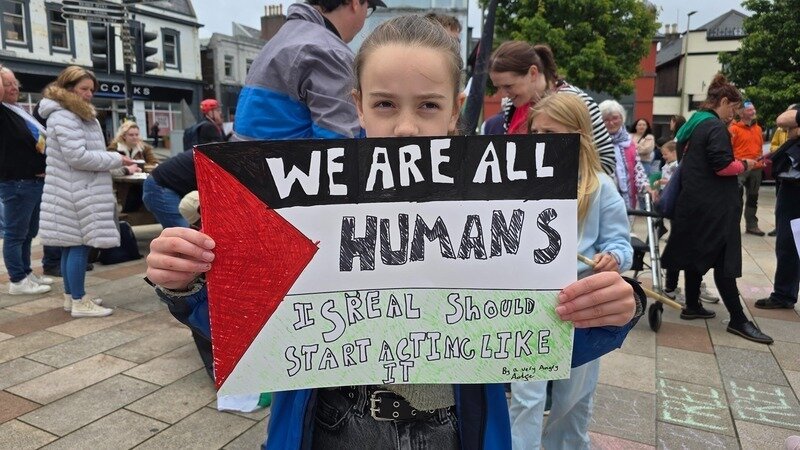 COOKS
WE ARE ALL
HUMANS
ISREAL SHOULD
START ACTING LIKE
IT
By a very Angry
FREE
FREE